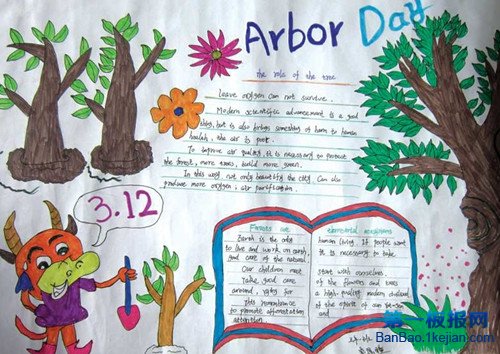 Arbor Day
the role of the tree
Leave oxygen can not survive.
Modern scientific advancement is a good
thing, but is also brings something of harm to human
health, the air is poor.
To improve air quality, it is necessary to protect
the forest, more trees, build more green.
In this way not only beautify the city. Can also
produce more oxygen, air purification.
3.12
Forests are
Earth is the only
to live and work on earth,
good care of the natural
Our children must
take good care
around
This
to promote afforestation
attention
elemental
human living. If people want
it is necessary to take
start with ourselves
of the flowers and trees
a high
of the spirit of our
and
第一板报网
BanBao.1kejian.com